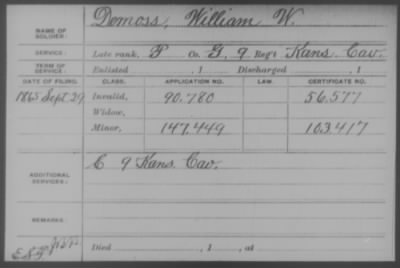 NAME OF SOLDIER: Demoss, William W.
SERVICE: Late rank, P Co. G, 9 Reg't Kans. Cav.
TERM OF SERVICE: Enlisted , 1 Discharged , 1
DATE OF FILING. CLASS. APPLICATION NO. LAW. CERTIFICATE NO.
1865 Sept. 29 Invalid, 90.780 56.577
Widow,
Minor, 147.449 103.417
ADDITIONAL SERVICES: E 9 Kans. Cav.
REMARKS:
Died , 1 , at